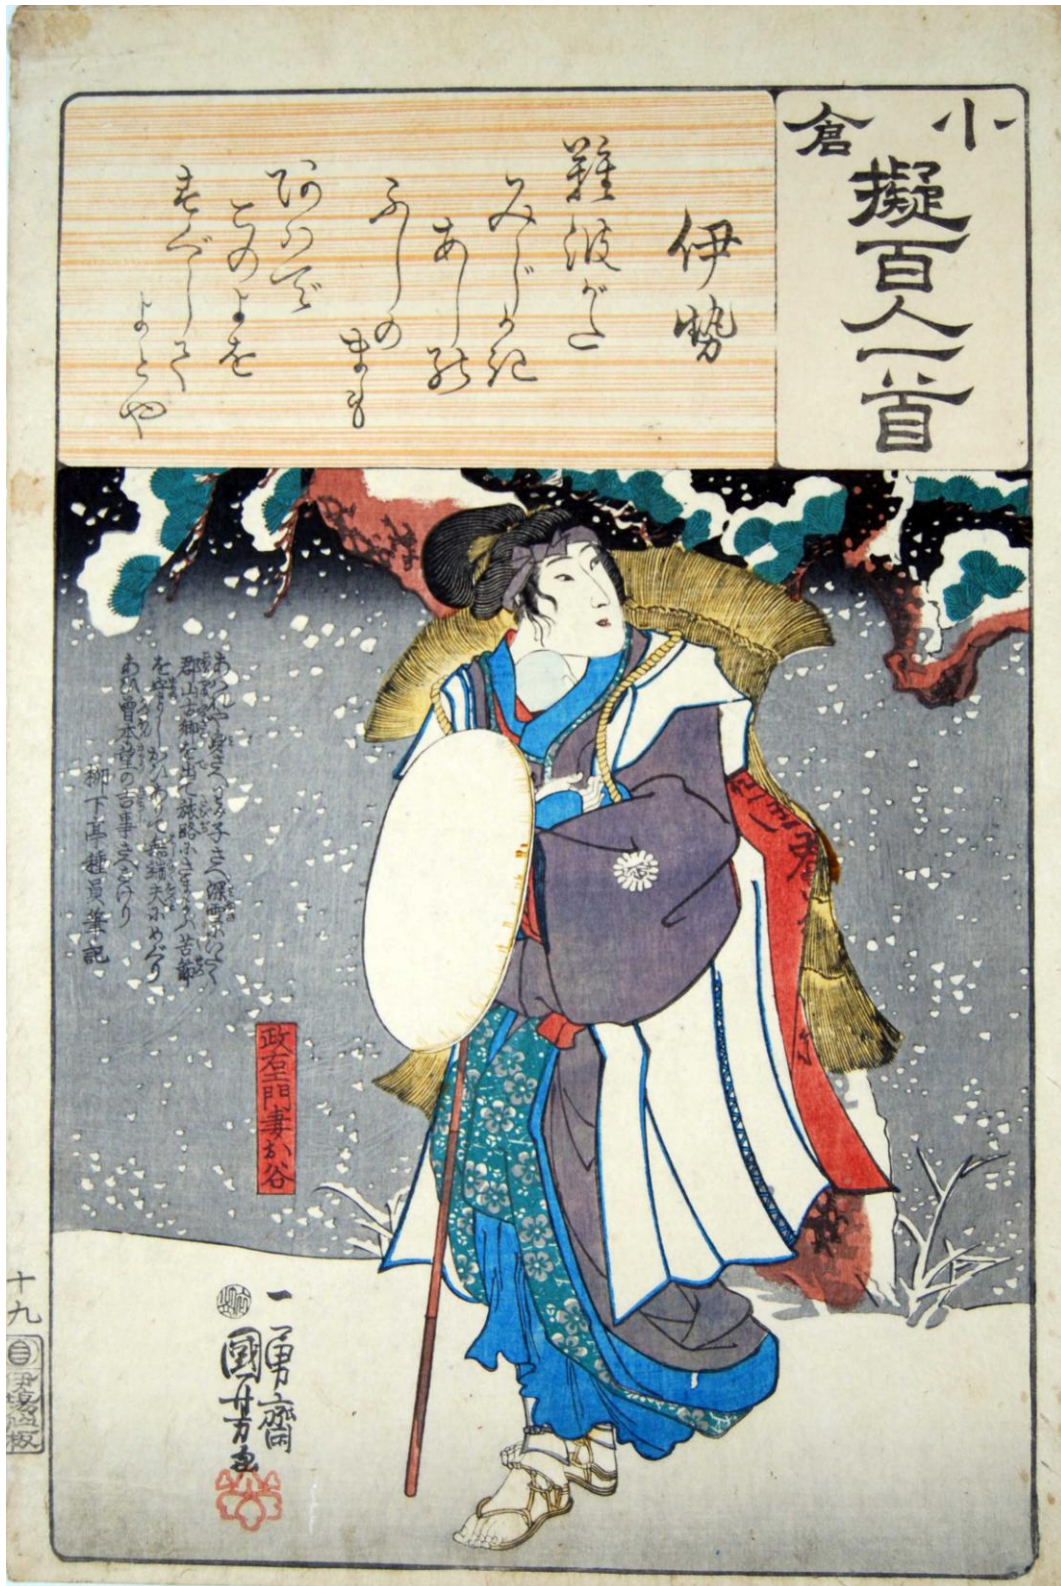 小倉
擬百人一首
伊勢
難波がた
みじかき
あしの
ふしの
まも
あはで
このよを
すぐして
よとや
郡山古郷を出て旅路にさまよふ苦節
柳下亭種員筆記
政右エ門妻お谷
一勇齋
國芳画
十九
伊場仙板